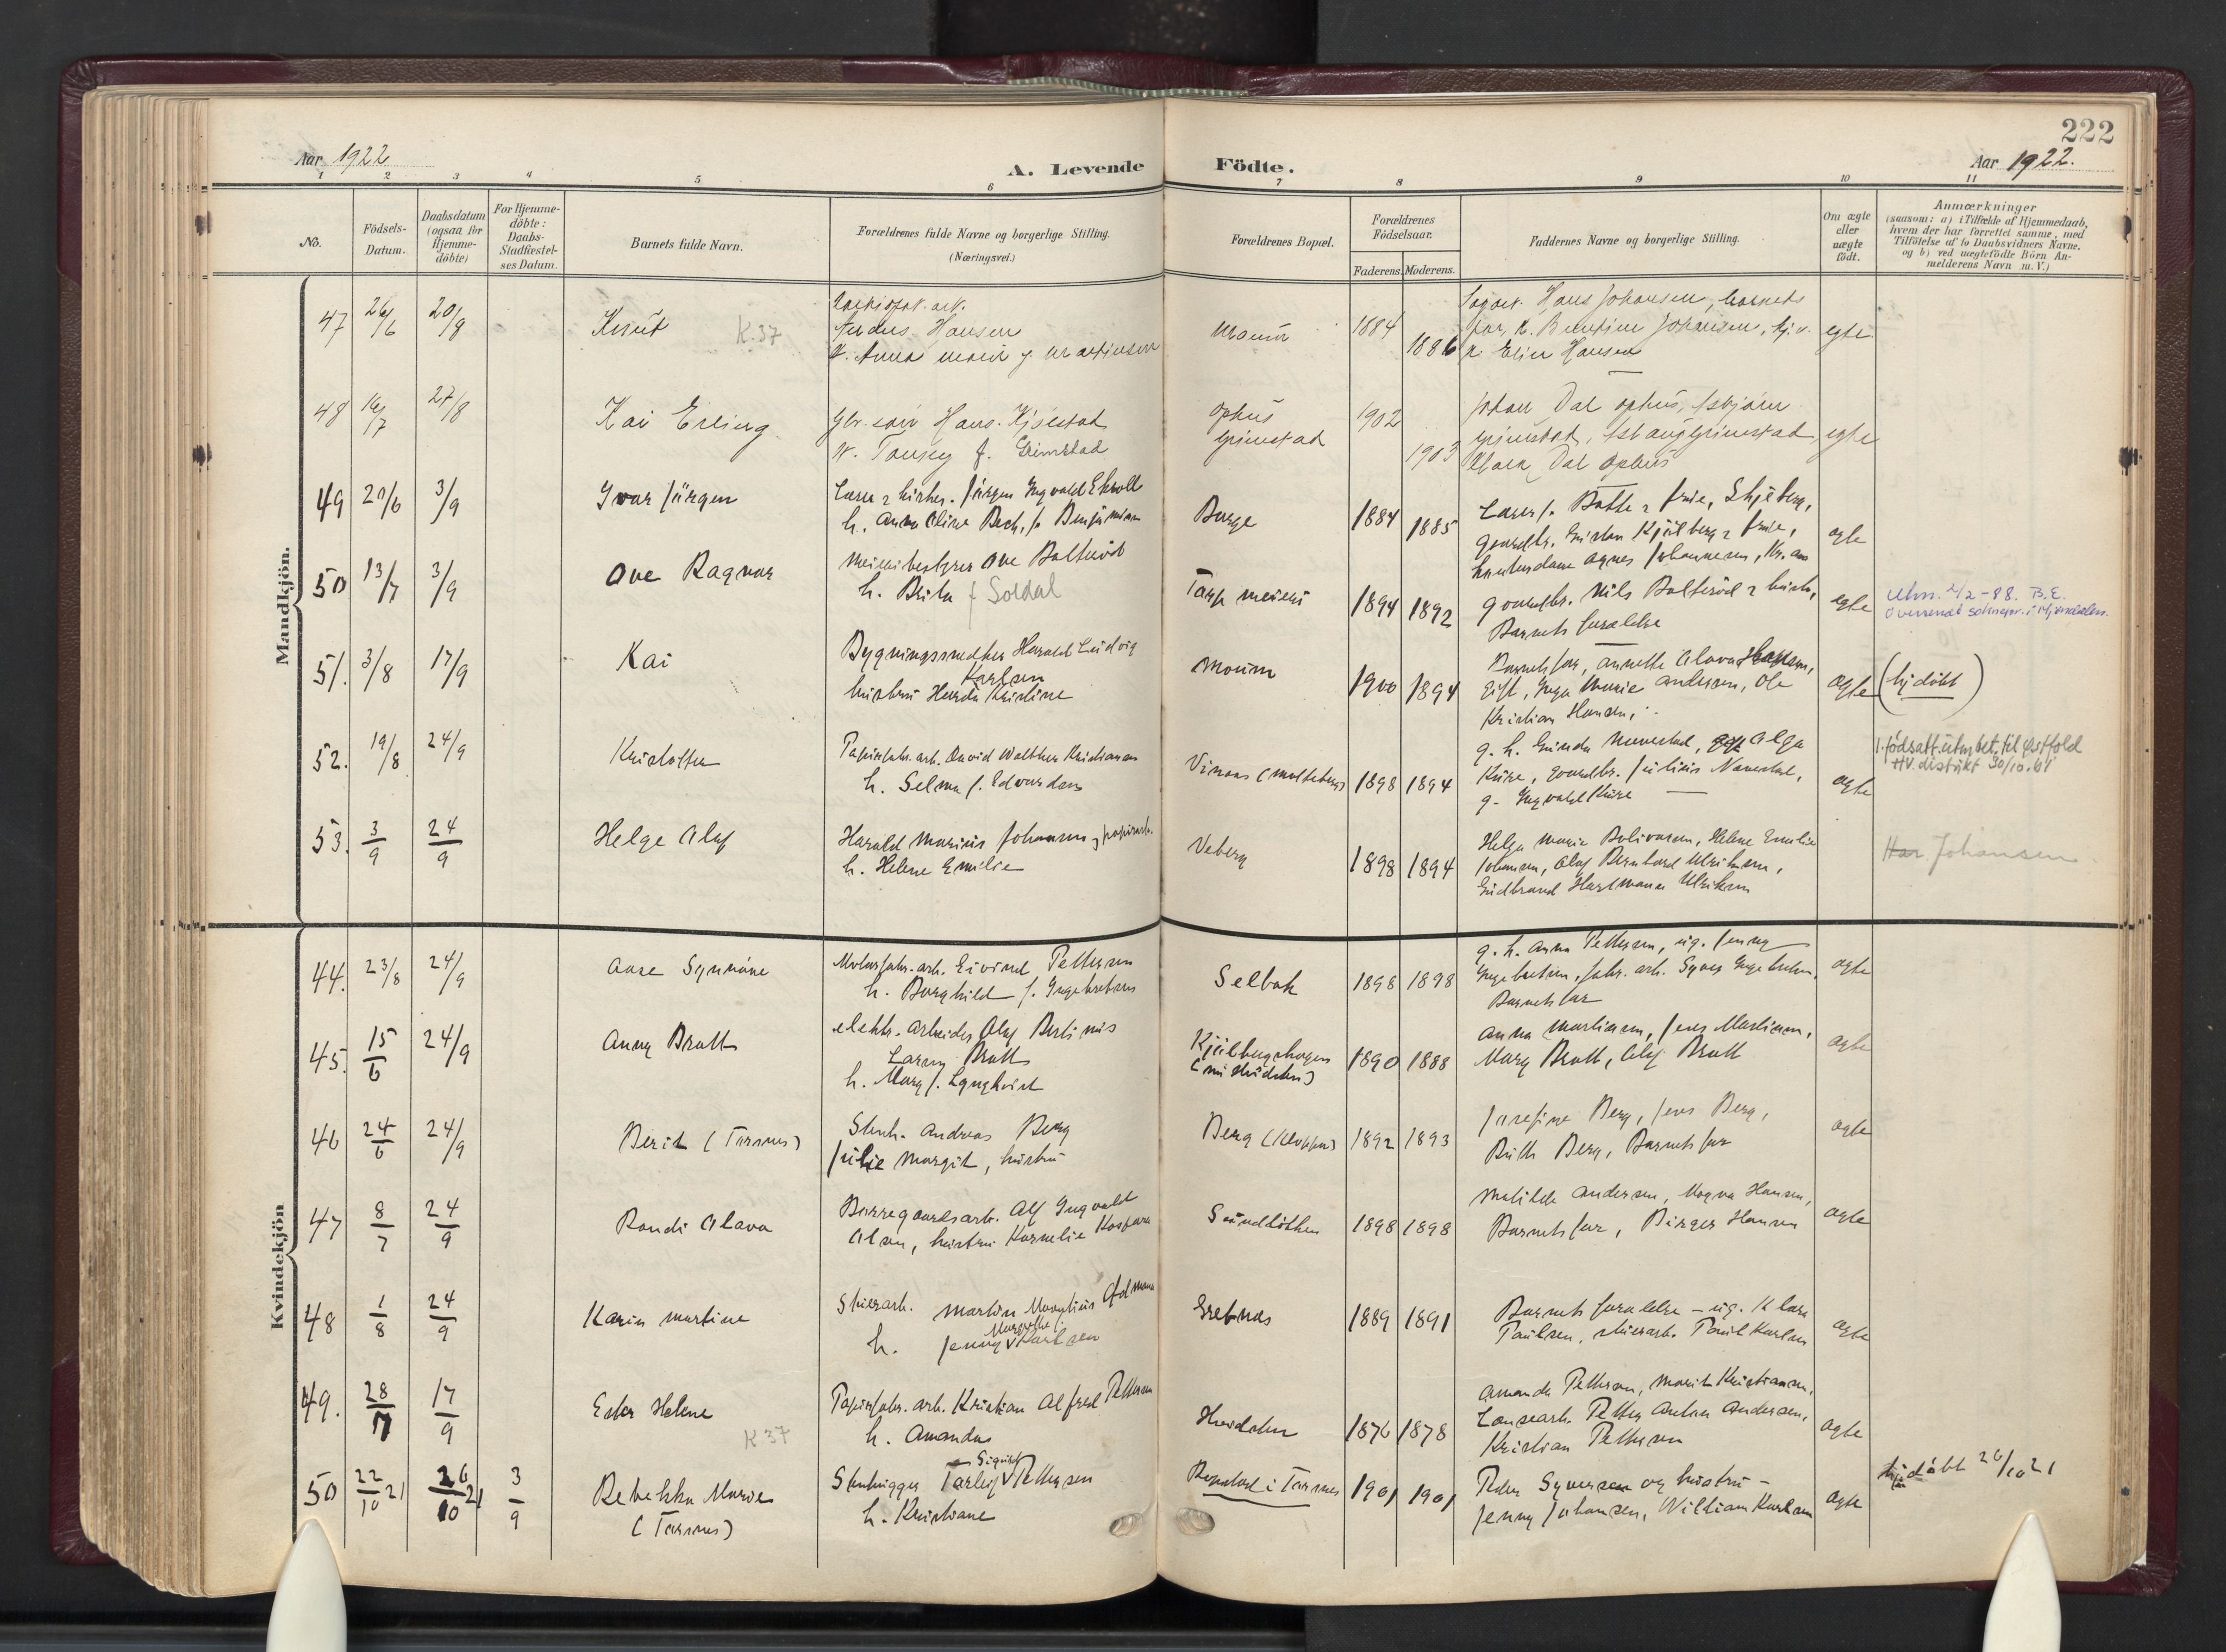 222
Aar 1922
A. Levende
Födte.
Aar 1922.
1 2 3 4 5 6 7 8 9 10 11
No.
Födsels-
Datum.
Daabsdatum
(ogsaa for
Hjemme-
döbte)
For Hjemme-
döbte:
Daabs-
Stadfæstel-
ses Datum.
Barnets fulde Navn.
Forældrenes fulde Navne og borgerlige Stilling.
(Næringsvei.)
Forældrenes Bopæl.
Forældrenes
Födselsaar.
Faderens. Moderens.
Faddernes Navne og borgerlige Stilling.
Om ægte
eller
uægte
födt.
Anmærkninger
(saasom: a) i Tilfælde af Hjemmedaab,
hvem der har forrettet samme, med
Tilföielse af to Daabsvidners Navne,
og b) ved uægtefödte Börn An-
melderens Navn m. V.)
Mandkjön.
47 26/6 20/8 Knut K.37
Hansen
Anna
1884 1886
Hans Johansen, barnets
far, Johansen,
Hansen
egte
48 16/7 27/8 Kai Erling
Hans Kjølstad
f. Grimstad
Ophus
Grimstad
1902 1903
Johan Dal Ophus, Asbjørn
Grimstad, Aslaug Grimstad
Klara Dal Ophus
egte
49 20/6 3/9 Ivar Jürgen
Lærer Jürgen Ingvald Ekholt
h. Anna Oline Bech, f. Benjaminsen
Borge
1884 1885
Lærer J. Batte & frue, Skjeberg,
gaardbr. Kjølberg & frue,
Agnes Johannesen, Kr.ania
egte
50 13/7 3/9 Ove Ragnar
Meieribestyrer Ove Balterød
h. Brita f Soldal
Torp meieri
1894 1892
gaardbr. Nils Balterød & hustru,
Barnets forældre
egte
Utm. 2/2-88. B.E.
51. 3/8 17/9 Kai
Bygningssnedker Harald Ludvig
Karlsen
hustru Herda Kristine
Moum
1900 1894
Barnets far, Annette Olava Hansen,
Gift, Inga Marie Andersen, Ole
Kristian Hansen,
ægte
(hj.döbt)
52. 19/8 24/9 Kristoffer
Papirfabr. arb. David Walther Kristiansen
h. Selma f. Edvardsen
1898 1894
g. h. Gunda Navestad, Olga
Kure, gaardbr. Julius Navestad,
g. Ingvald Kure
ægte
1. födsatt. utm. bet. til Østfold
HV. distrikt 30/10.61
53. 3/9 24/9 Helge Olaf
Harald Marius Johansen, papirarb.
h. Helene Emilie
Veberg
1898 1894
Helga Marie Bolivarsen, Helene Emilie
Johansen, Olaf Bernhard Ulriksen,
Gudbrand Hartmann Ulriksen
Har. Johansen
Kvindekjön
44. 23/8 24/9 Aase Synnöve
Motorfabr. arb. Eivind Pettersen
h. Borghild f. Ingebretsen
Selbak
1898 1898
g. h. Anna Pettersen, ug. Jenny
Ingebretsen, fabr. arb. Syver Ingebretsen,
Barnets far
ægte
45. 15/6 24/9 Anny Bratt
elektr. arbeider Olaf Bertinius
Larny Bratt
h. Mary f. Lyngkvist
Kjølbergskogen
1890 1888
Anna Martinsen, Jens Martinsen,
Mary Bratt, Olaf Bratt
ægte
46 24/6 24/9 Berit (Torsnes)
Stenh. Andreas Berg
Julie Margit, hustru
Berg (Kloppa)
1892 1893
Josefine Berg, Jens Berg,
Ruth Berg, Barnets far
ægte
47 8/7 24/9 Randi Olava
Borregaardsarb. Alf Ingvald
Olsen, hustru Kornelie Kaspara
Sundlökken
1898 1898
Matilde Andersen, Magna Hansen,
Barnets far, Birger Hansen
ægte
48 1/8 24/9 Karin Martine
Skierarb. Martin Mauritius Ødmann
h. Jenny Margrethe f. Karlsen
Gretnes
1889 1891
Barnets forældre - ug. Klara
Paulsen, skierarb. Paul Karlsen
ægte
49. 28/7 17/9 Ester Helene K 37
Papirfabr. arb. Kristian Alfred Pettersen
h. Amanda
Hvidsten
1876 1878
Amanda Pettersen, Marit Kristiansen,
Løusearb. Petter Anton Andersen,
Kristian Pettersen
ægte
50 22/10 21 26/10 21 3/9 Rebekka Marie
(Torsnes)
Stenhugger Torleif Sigurd Pettersen
h. Kristiane
i Torsnes
1901 1901
Peder Syversen og hustru -
Jenny Johansen, William Karlsen
ægte
hj.döbt 26/10 21